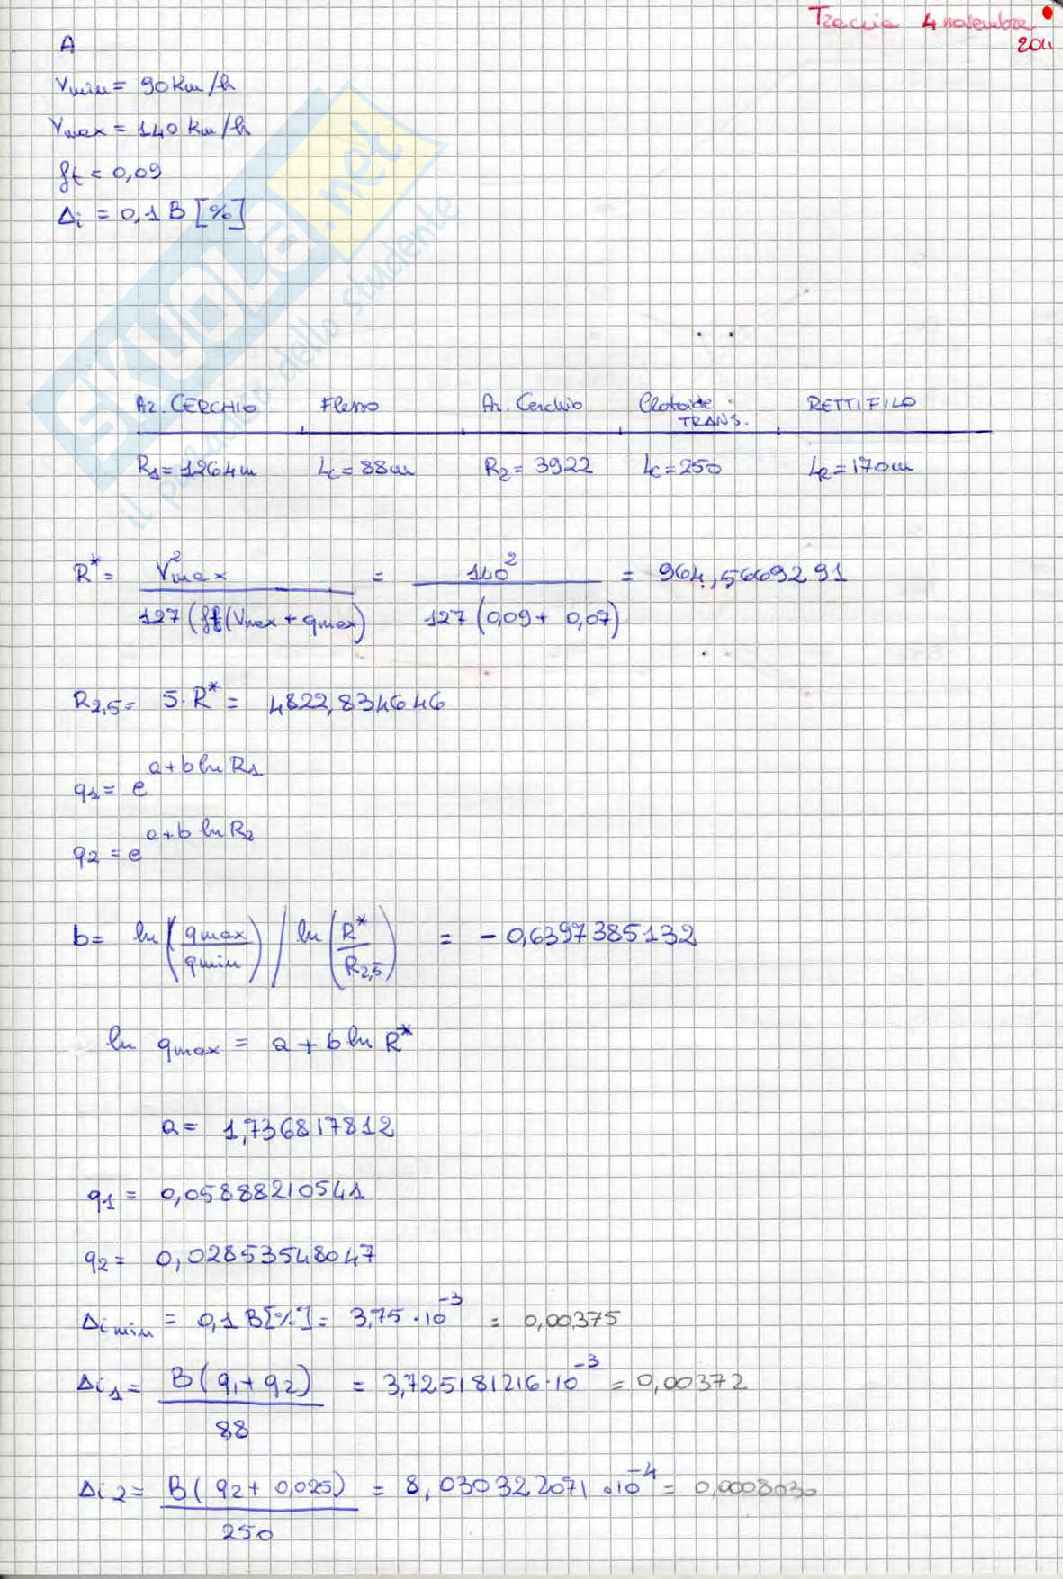 Traccia 4 novembre
2011
A
Vmin = 90 Km/h
Vmax = 140 Km/h
ft = 0,09
Δi = 0,1 B [%]
SKUOLA.net
il paradiso dello studente
Ar. CERCHIO Flesso Ar. Cerchio Clotoide TRANS. RETTIFILO
R1 = 1264m Lc = 88m R2 = 3922 Lc = 250 LR = 170m
R* = V²max / 127 (ft(Vmax + qmax) = 140² / 127 (0,09 + 0,07) = 964,5669291
R2,5 = 5·R* = 4822,834646
q1 = e^(a+b ln R1)
q2 = e^(a+b ln R2)
b = ln (qmax/qmin) / ln (R*/R2,5) = -0,6397385132
ln qmax = a + b ln R*
a = 1,736817812
q1 = 0,05888210541
q2 = 0,02853548047
Δi min = 0,1 B[%] = 3,75 · 10⁻³ = 0,00375
Δi1 = B (q1 + q2) / 88 = 3,725181216·10⁻³ = 0,00372
Δi2 = B( q2 + 0,025) / 250 = 8,030322071 · 10⁻⁴ = 0,0008030